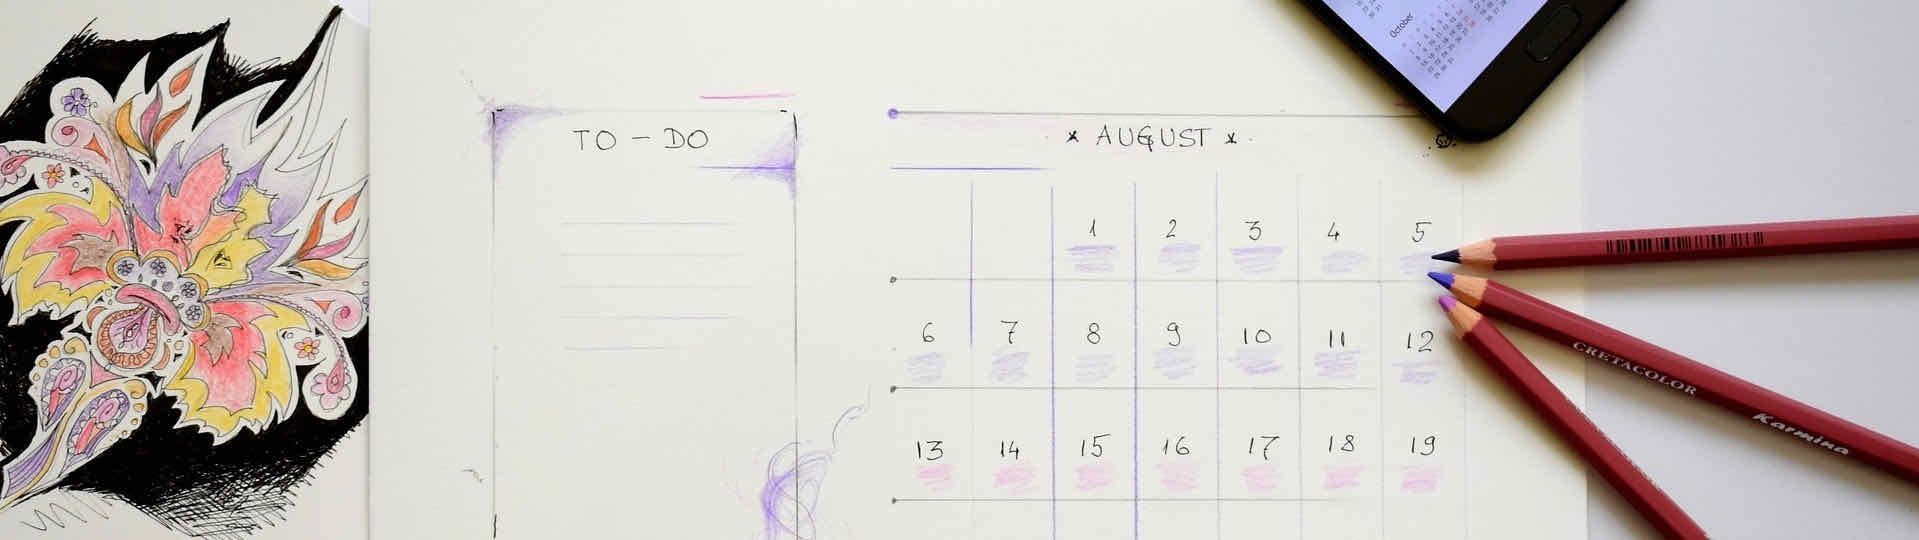 TO - DO
* AUGUST *
1 2 3 4 5
6 7 8 9 10 11 12
13 14 15 16 17 18 19
October
CRETACOLOR Karmina